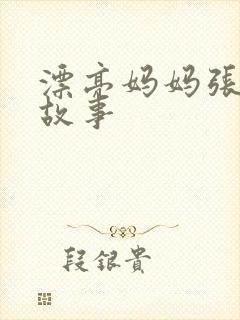 漂亮妈妈張
故事
段銀貴